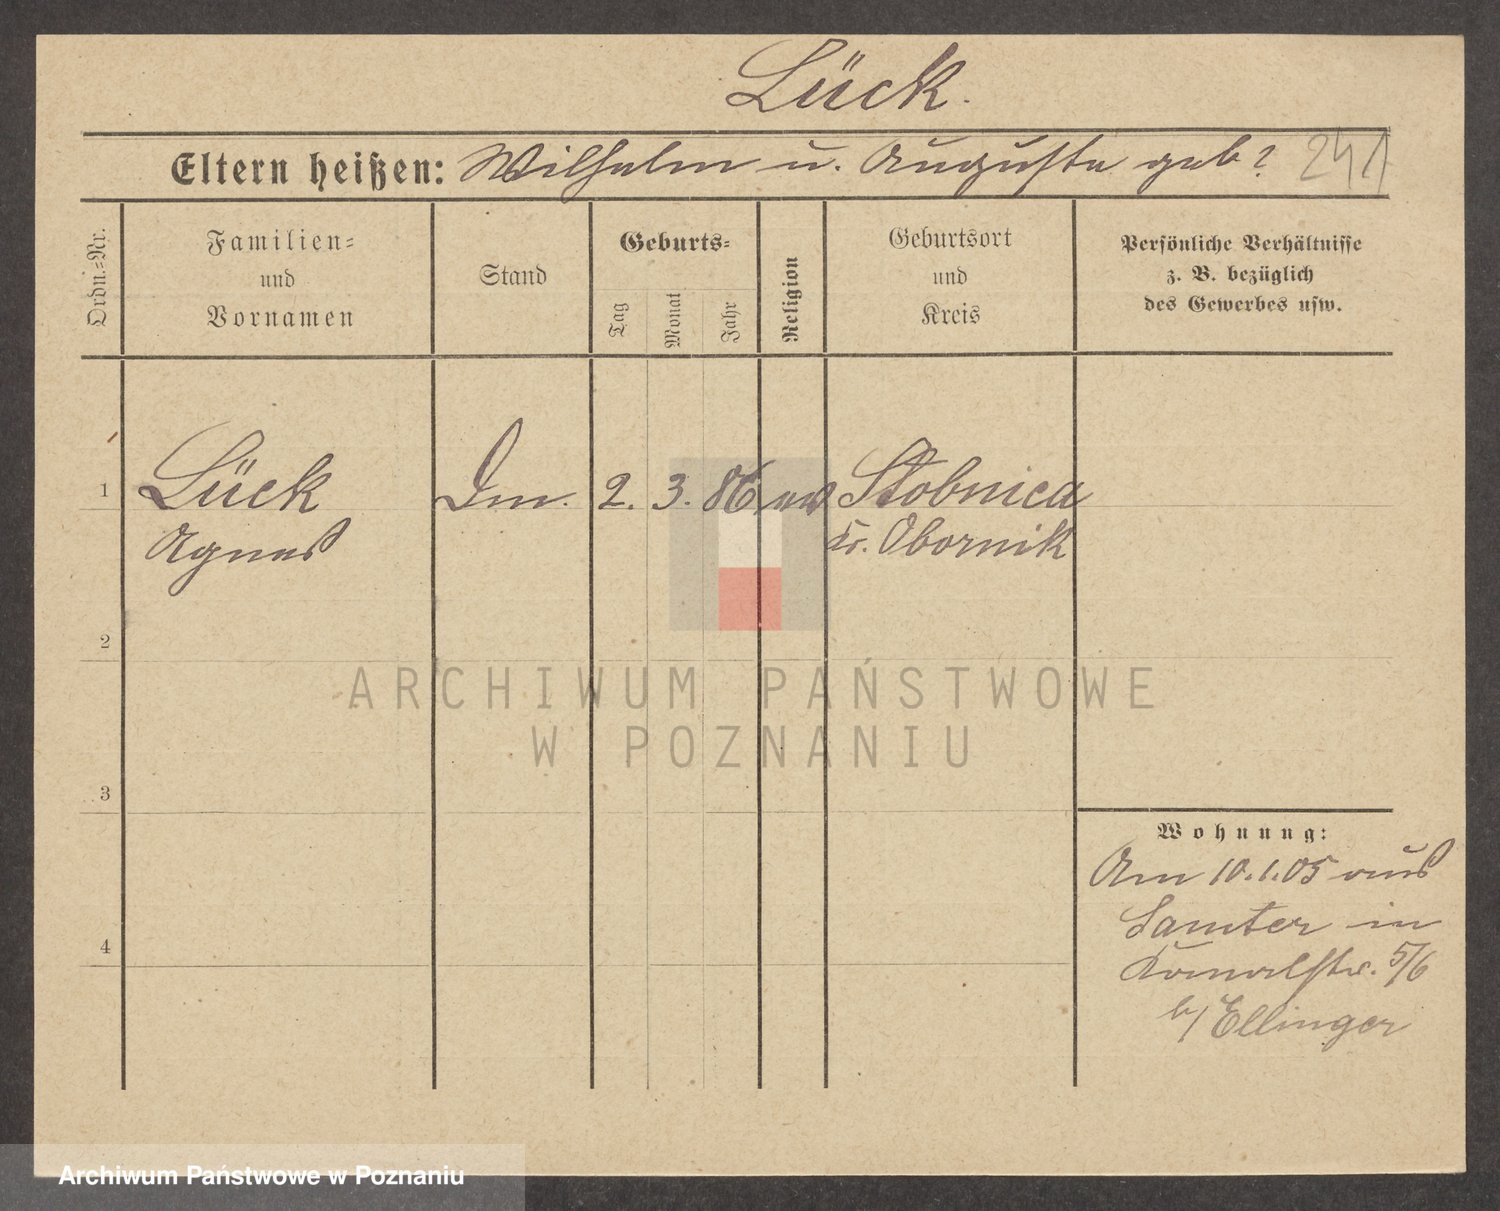 Lück.
Eltern heißen: Wilhelm u. Auguste geb? 241
Ordn.=Nr.
Familien=
und
Vornamen
Stand
Geburts=
Tag
Monat
Jahr
Religion
Geburtsort
und
Kreis
Persönliche Verhältnisse
z. B. bezüglich
des Gewerbes usw.
1 Lück Dm. 2. 3. 86 ev Stobnica
Agnes Kr. Obornik
2
ARCHIWUM PAŃSTWOWE
W POZNANIU
3
Wohnung:
Am 10.1.05 aus
4 Samter in
5/6
b/ Ellinger
Archiwum Państwowe w Poznaniu